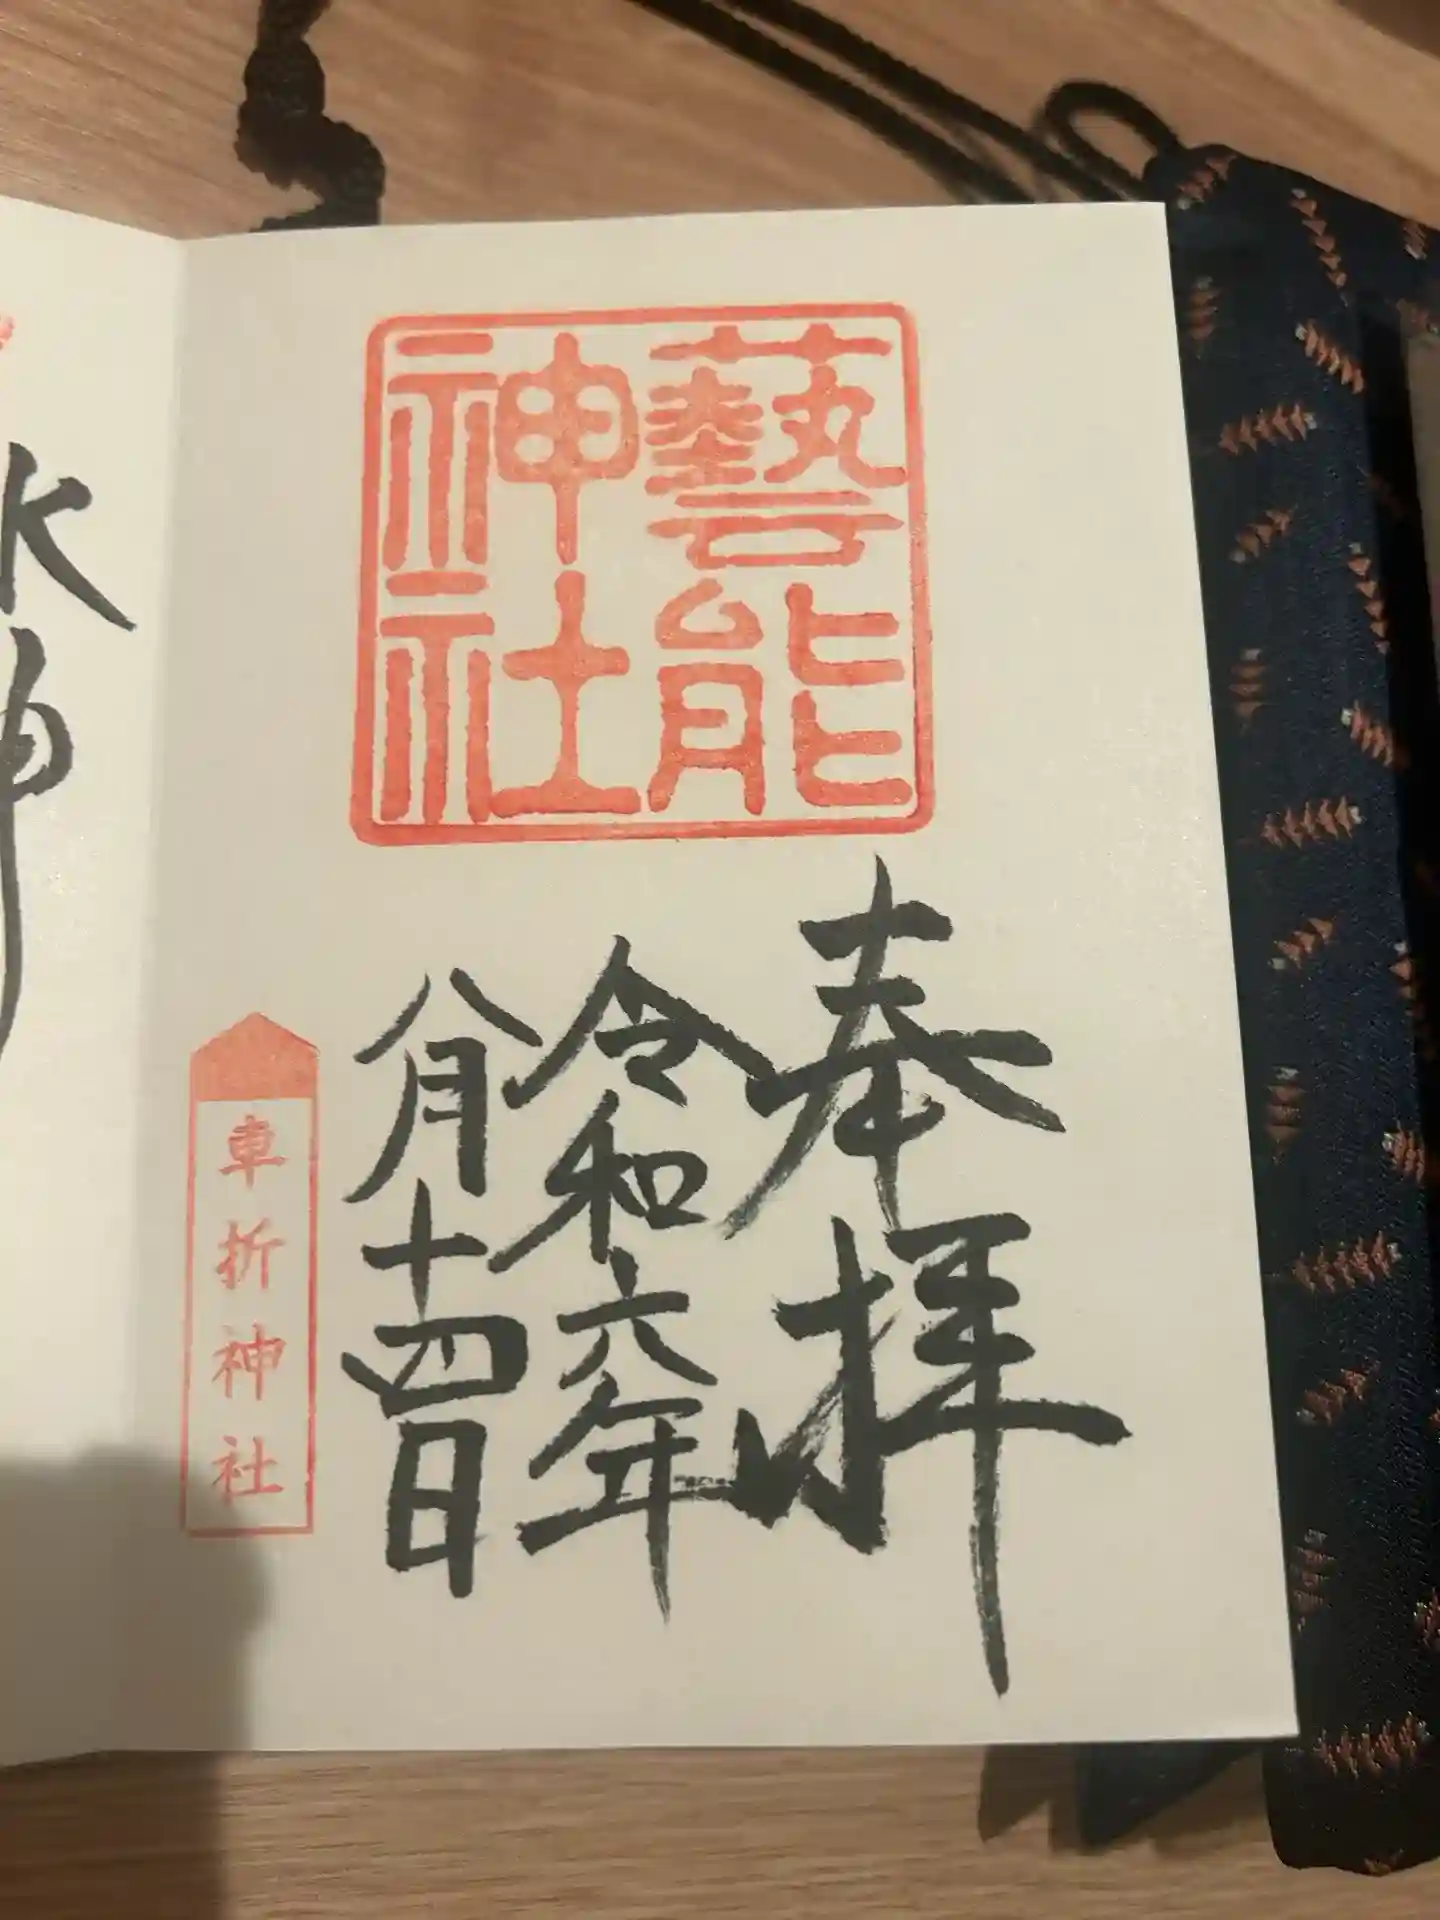 藝能
神社
奉拝
令和六年
八月十四日
車折神社